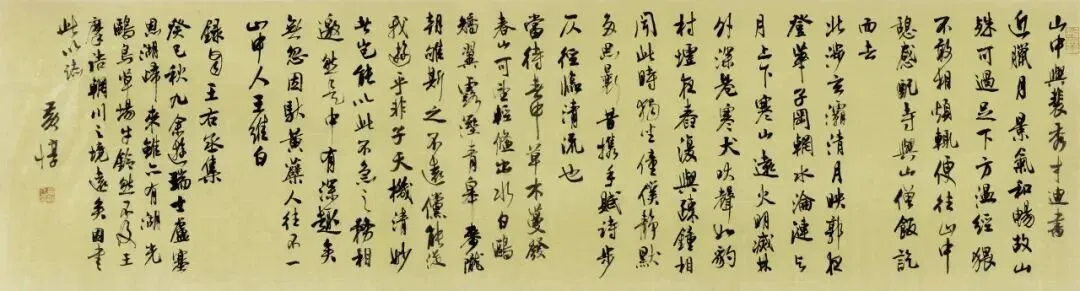 山中與裴秀才迪書
近臘月景氣和暢故山
殊可過足下方溫經猥
不敢相煩輒便往山中
憩感配寺與山僧飯訖
而去
北涉玄灞清月映郭夜
登華子岡輞水淪漣與
月上下寒山遠火明滅林
外深巷寒犬吠聲如豹
村墟夜舂復與疎鐘相
間此時獨坐僮僕靜默
多思曩昔携手賦詩步
仄徑臨清流也
當待春中草木蔓發
春山可望輕鯈出水白鷗
矯翼露濕青皋麥隴
朝雊斯之不遠儻能從
我遊乎非子天機清妙
者豈能以此不急之務相
邀然是中有深趣矣
無忽因馱黃蘗人往不一
山中人王維白
錄自王右丞集
癸巳秋九余遊瑞士盧塞
恩湖歸來雖亦有湖光
鷗鳥草場牛鈴然不及王
摩詰輞川之境遠矣因書
此以誌
黃惇